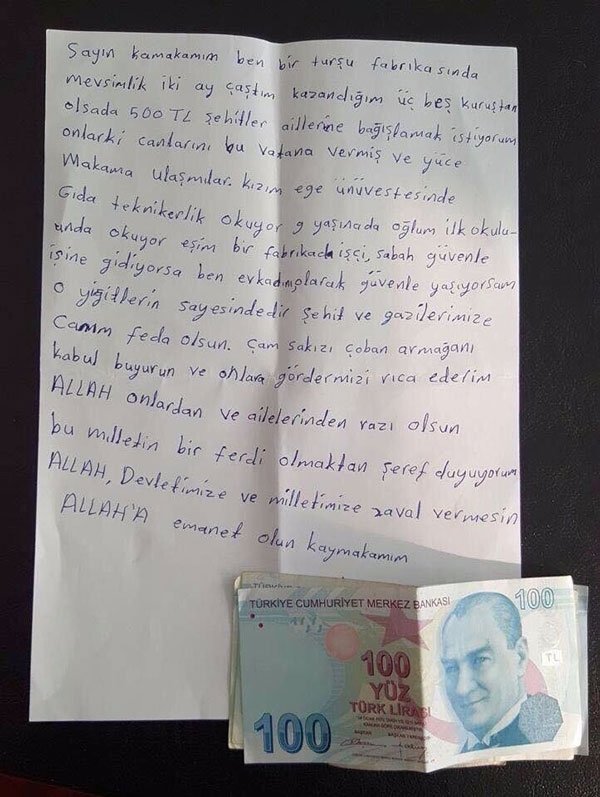 Sayın kamakamım ben bir turşu fabrikasında
mevsimlik iki ay çaştım kazandığım üç beş kuruştan
olsada 500 TL şehitler aillerine bağışlamak istiyorum
onlarki canlarını bu vatana vermiş ve yüce
Makama ulaşmılar. kızım ege ünüvestesinde
Gıda teknikerlik okuyor 9 yaşınada oğlum ilkokulu-
unda okuyor eşim bir fabrikada işçi, sabah güvenle
işine gidiyorsa ben evkadınıolarak güvenle yaşıyorsam
o yiğitlerin sayesindedir şehit ve gazilerimize
Canım feda olsun. Çam sakızı çoban armağanı
kabul buyurun ve onlara göndermizi rica ederim
ALLAH onlardan ve ailelerinden razı olsun
bu milletin bir ferdi olmaktan şeref duyuyorum
ALLAH, Devletimize ve milletimize zaval vermesin
ALLAH'A emanet olun kaymakamım
TÜRKİYE CUMHURİYET MERKEZ BANKASI
100
100
YÜZ
TÜRK LİRASI
TL
100